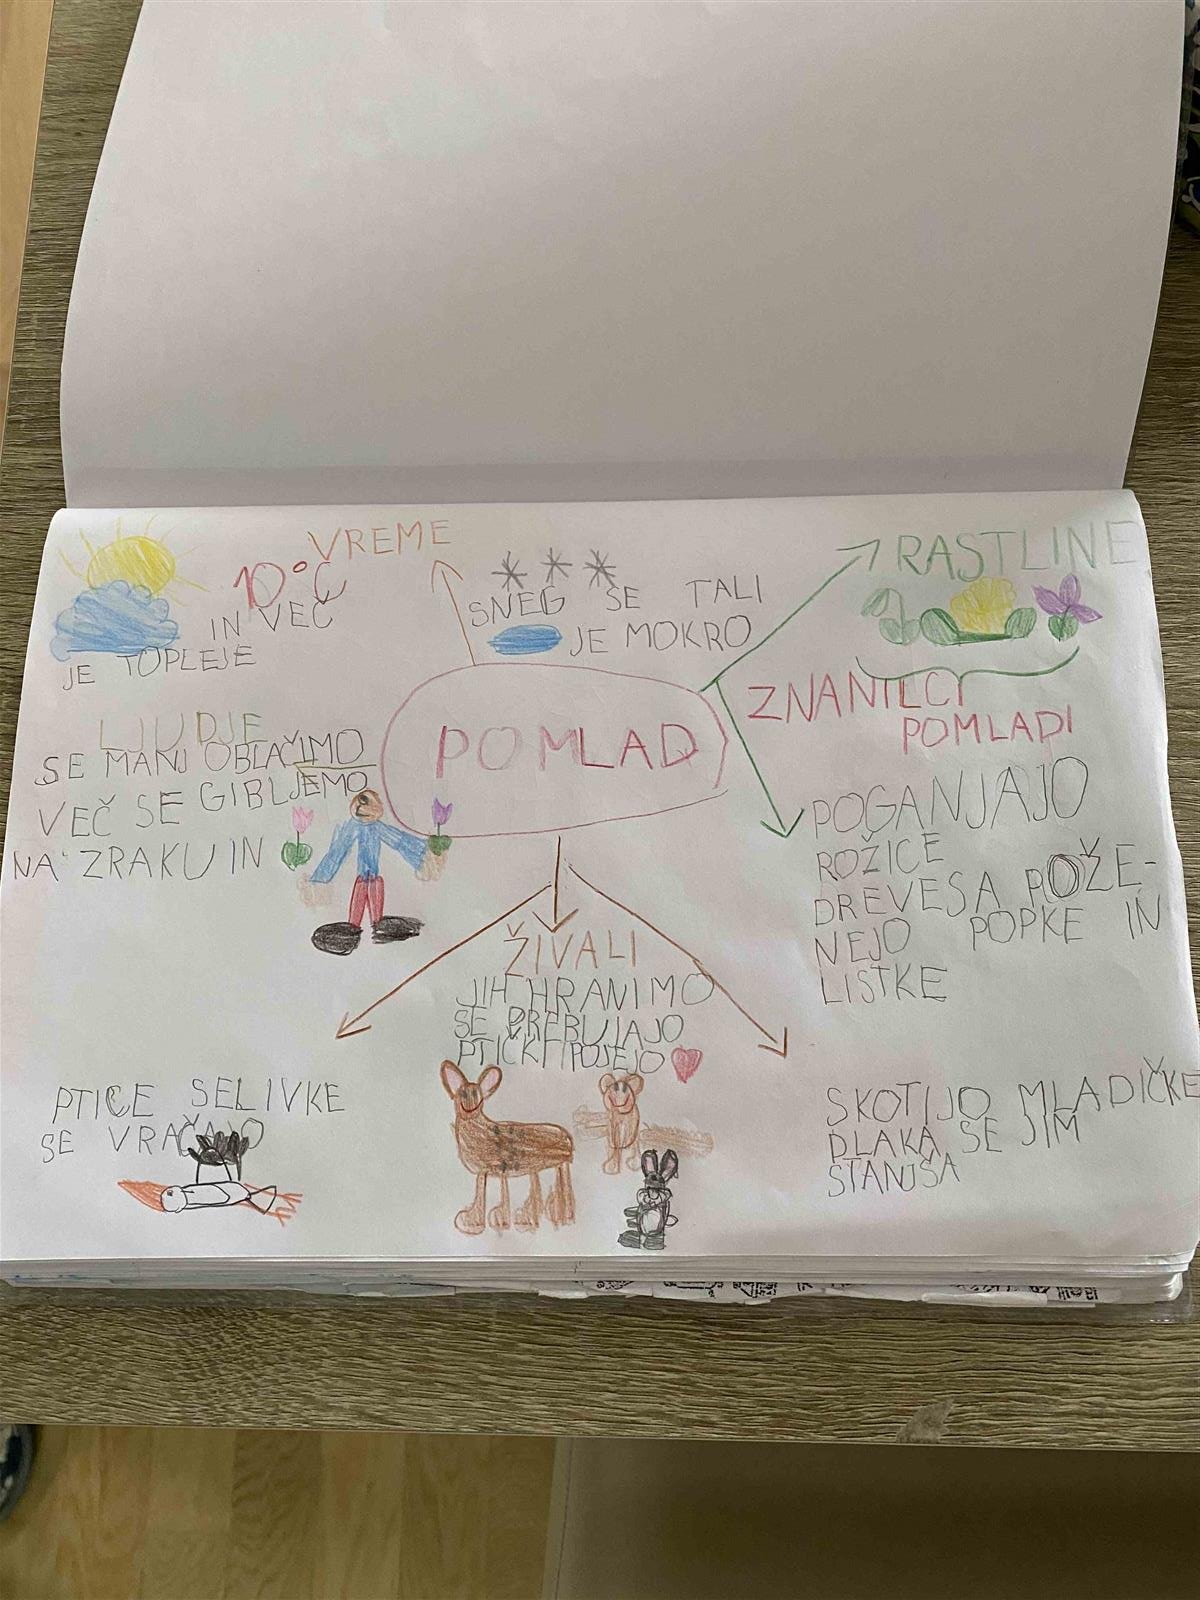 VREME
10°C
IN VEČ
JE TOPLEJE
SNEG SE TALI
JE MOKRO
RASTLINE
ZNANILCI
POMLADI
POMLAD
LJUDJE
SE MANJ OBLAČIMO
VEČ SE GIBLJEMO
NA ZRAKU IN
POGANJAJO
ROŽICE
DREVESA POŽE-
NEJO POPKE IN
LISTKE
ŽIVALI
JIH HRANIMO
SE PREBUJAJO
PTIČKI POJEJO
PTICE SELIVKE
SE VRAČAJO
SKOTIJO MLADIČKE
DLAKA SE JIM
STANJŠA